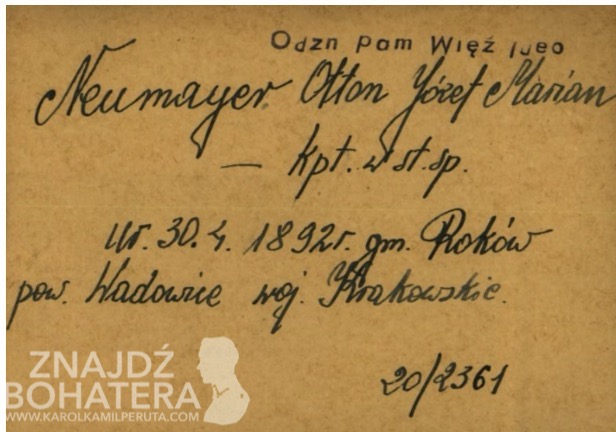 Odzn Pam Więź Ideo
Neumayer Otton Józef Marian
— kpt. w st. sp.
Ur. 30. 4. 1892r. gm. Roków
pow. Wadowice woj. Krakowskie.
20/2361
ZNAJDŹ
BOHATERA
WWW.KAROLKAMILPERUTA.COM